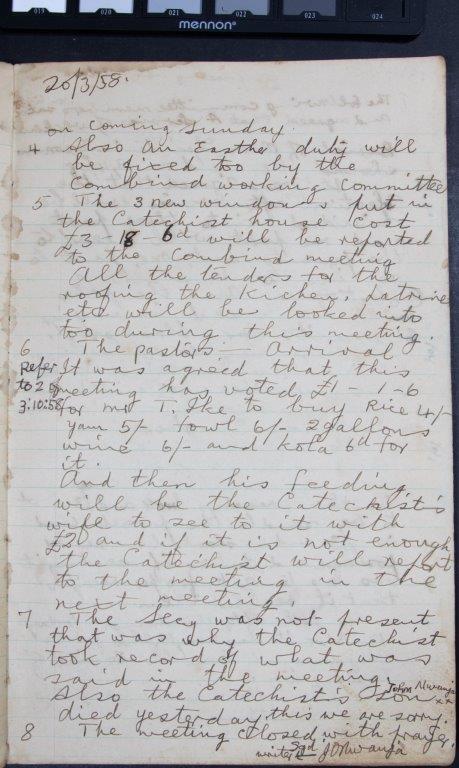 019 020 021 022 023 024
mennon®
20/3/58.
on coming Sunday.
4 Also an Easther duty will
be fixed too by the
Combind working committee
5 The 3 new windows put in
the Catechist house cost
£3-18-6d will be reported
to the combind meeting
All the tenders for the
roofing the Kichen, Latrine
etc will be looked into
too during this meeting.
6 The pastors — Arrival
Refer It was agreed that this
to 2 meeting has voted £1-1-6
3:10:58 for mr T. Ike to buy Rice 4/-
yam 5/- fowl 6/- 2gallons
wine 6/- and kola 6d for
it.
And then his feeding
will be the Catechist's
wife to see to it with
£2 and if it is not enough
the Catechist will report
to the meeting in the
next meeting.
7 The Secy was not present
that was why the Catechist
took record of what was
said in the meeting.
Also the Catechist's Son John Nwanja
died yesterday, this we are sorry.
8 The meeting closed with prayer.
J O Nwanja